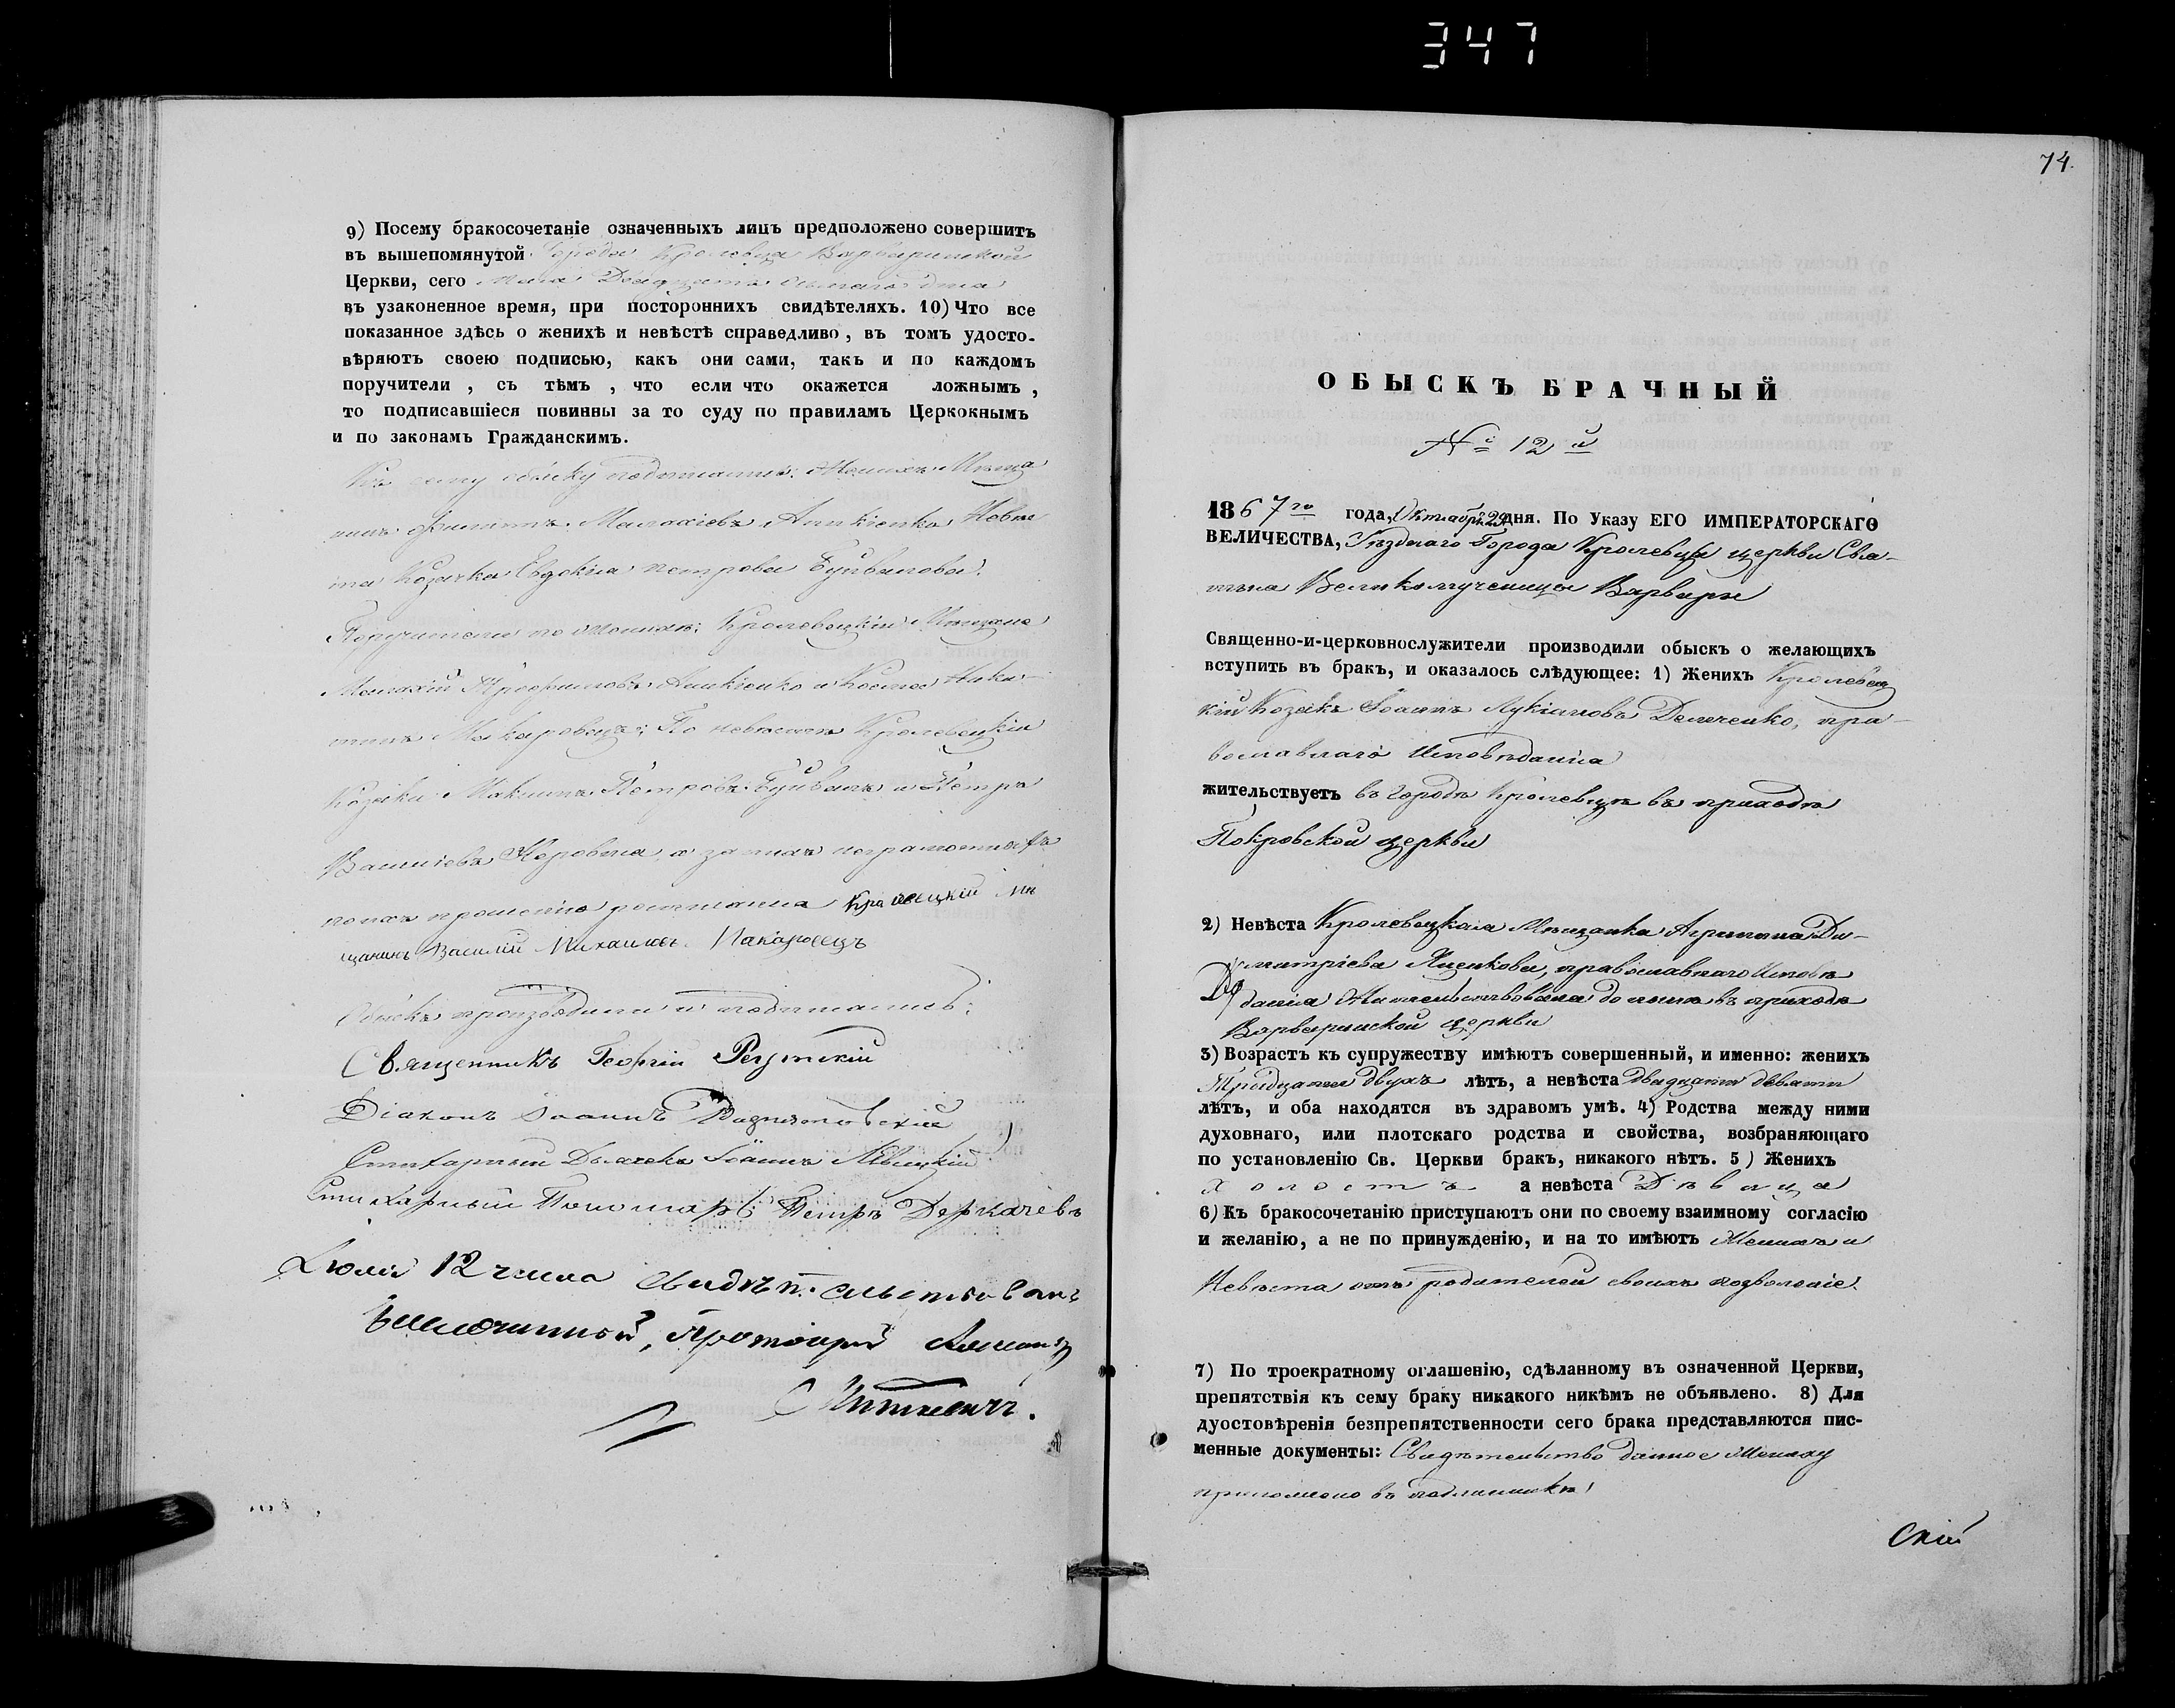 347
9) Посему бракосочетаніе означенныхъ лицъ предположено совершить
въ вышепомянутой Города Кролевца Варваринской
Церкви, сего Мая Двадцать дня
въ узаконенное время, при постороннихъ свидѣтеляхъ. 10) Что все
показанное здѣсь о женихѣ и невѣстѣ справедливо, въ томъ удосто-
вѣряютъ своею подписью, какъ они сами, такъ и по каждомъ
поручители, съ тѣмъ, что если что окажется ложнымъ,
то подписавшіеся повинны за то суду по правиламъ Церкокнымъ
и по законамъ Гражданскимъ.
Къ сему обыску подписались: Женихъ Мѣща
нинъ Филиппъ Малахіевъ Невѣ
ста Козачка Евдокія Петрова Буйвалова.
Поручители по женихѣ: Кролевецкіи Мѣщане
Малахій Трофимовъ и Косма Ники
тинъ Макаровецъ; По невѣстѣ Кролевецкіи
Козаки Максимъ Петровъ Буйвалъ и Петръ
Василіевъ Коровка, а за нихъ неграмотныхъ
по ихъ прошенію росписался Кралевецкій Мѣ
щанинъ Василій Михаиловъ Макаровецъ
Обыскъ производили и подписались:
Священникъ Георгій Реутскій
Діаконъ Іоаннъ
Стихарный Дьячекъ Іоаннъ Левицкій
Стихарный Пономарь Петръ Деркачевъ
Іюля 12 числа Свидѣтельствовалъ
Благочинный, Протоіерей
Миткевичъ.
74.
ОБЫСКЪ БРАЧНЫЙ
№ 12й
1867го года, Октября 29 дня. По Указу ЕГО ИМПЕРАТОРСКАГО
ВЕЛИЧЕСТВА, Уѣзднаго Города Кролевца церкви Свя-
тыя Великомученицы Варвары
Священно-и-церковнослужители производили обыскъ о желающихъ
вступить въ бракъ, и оказалось слѣдующее: 1) Женихъ Кролевец
кій Козакъ Іоаннъ Лукіановъ Демченко, пра-
вославнаго Исповѣданія
жительствуетъ въ городѣ Кролевцѣ въ приходѣ
Покровской церкви
2) Невѣста Кролевецкая Мѣщанка Агрипина Ди-
митріева Яценкова, православнаго Исповѣ
данія Жительствовала до нынѣ въ приходѣ
Варваринской церкви
3) Возрастъ къ супружеству имѣютъ совершенный, и именно: женихъ
Тридцати двухъ лѣтъ, а невѣста двадцати девяти
лѣтъ, и оба находятся въ здравомъ умѣ. 4) Родства между ними
духовнаго, или плотскаго родства и свойства, возбраняющаго
по установленію Св. Церкви бракъ, никакого нѣтъ. 5) Женихъ
холостъ а невѣста Дѣвица
6) Къ бракосочетанію приступаютъ они по своему взаимному согласію
и желанію, а не по принужденію, и на то имѣютъ Женихъ и
Невѣста отъ родителей своихъ позволеніе.
7) По троекратному оглашенію, сдѣланному въ означенной Церкви,
препятствія къ сему браку никакого никѣмъ не объявлено. 8) Для
дуостовѣренія безпрепятственности сего брака представляются пис-
менные документы: Свидѣтельство данное Жениху
приложено въ подлинникѣ
Скій